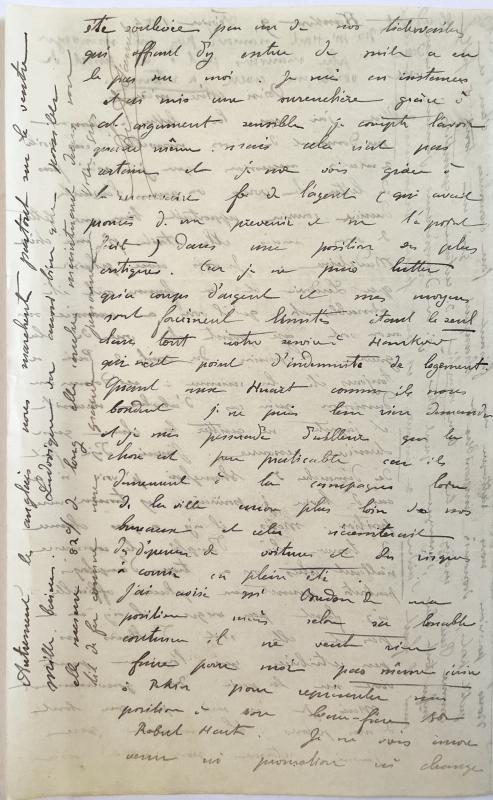 été soulevée par un de nos
qui offrant d'y entrer de suite a eu
le pas sur moi. Je suis en instances
et ai mis une surenchère grâce à
cet argument sensible je compte l'avoir
quand même : mais cela n'est pas
certain et je me vois grâce à
la mauvaise foi de l'agent (qui avait
promis de me prévenir et ne l'a point
fait) dans une position des plus
critiques. Car je ne puis lutter
qu'à coups d'argent et mes moyens
sont forcément limités étant le seul
dans tout notre service à Hankow
qui n'ait point d'indemnité de logement.
Quant aux Huart comme ils nous
boudent je ne puis leur rien demander
et je suis persuadé d'ailleurs que la
chose est peu praticable car ils
demeurent à la campagne loin
de la ville encore plus loin de nos
bureaux et cela nécessiterait
des dépenses de voitures et des risques
à courir en plein été.
J'ai avisé Mr de ma
position mais selon sa louable
coutume il ne veut rien
faire pour moi pas même écrire
à Pékin pour représenter ma
position à son beau-frère Sir
Robert Hart. Je ne vois encore
venir ni promotion ni change
Autrement les anglais nous marchent partout sur le ventre
Mille baisers. Ludovique va aussi bien que possible
elle mesure 82 c/m de long elle couche maintenant dans son
lit de fer comme une grande personne